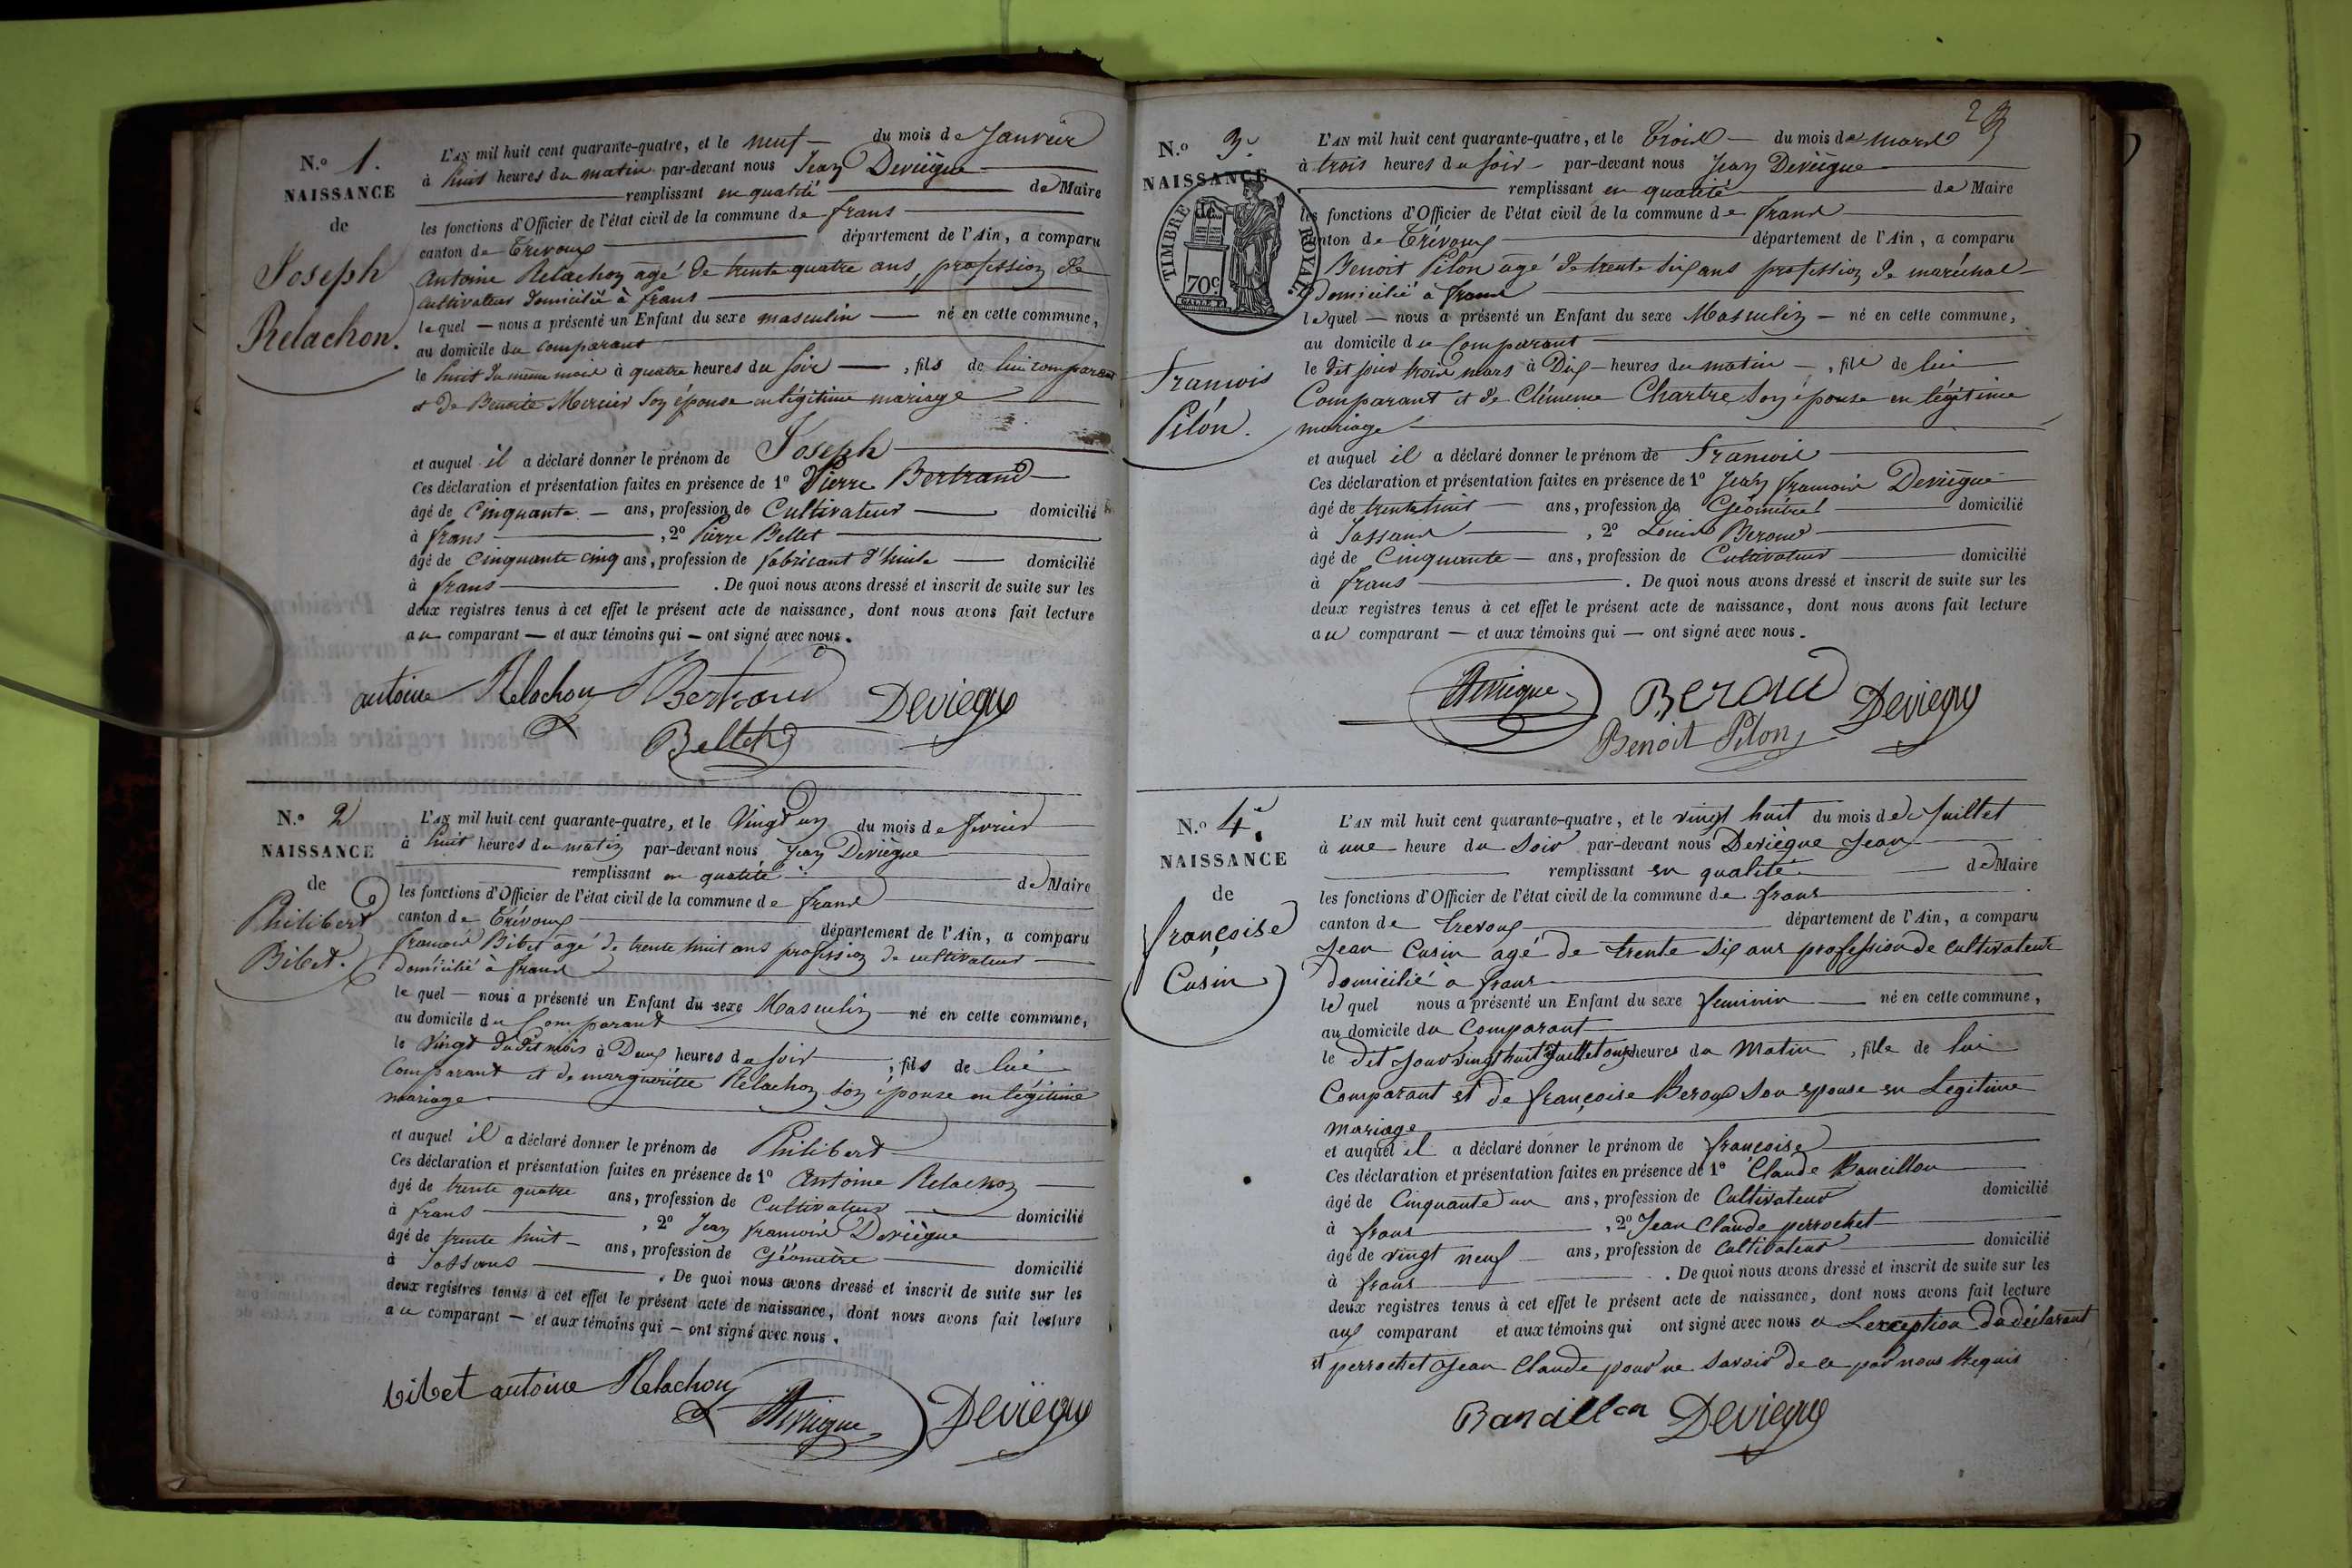 N.o 1.
NAISSANCE
de
Joseph
Relachon.
L'AN mil huit cent quarante-quatre, et le neuf du mois de Janvier
à huit heures du matin par-devant nous Jean Deviègue
remplissant en qualité de Maire
les fonctions d'Officier de l'état civil de la commune de frans
canton de Trévoux département de l'Ain, a comparu
Antoine Relachon agé de trente quatre ans, profession de
cultivateur domicilié à frans
lequel — nous a présenté un Enfant du sexe masculin — né en cette commune,
au domicile du comparant
le huit du même mois à quatre heures du soir — , fils de lui comparant
et de Benoite Mercier son épouse en légitime mariage
et auquel il a déclaré donner le prénom de Joseph
Ces déclaration et présentation faites en présence de 1o Pierre Bertrand
âgé de Cinquante — ans, profession de Cultivateur — domicilié
à frans , 2o Pierre Bellet
âgé de Cinquante cinq ans, profession de fabricant d'huile — domicilié
à frans . De quoi nous avons dressé et inscrit de suite sur les
deux registres tenus à cet effet le présent acte de naissance, dont nous avons fait lecture
au comparant — et aux témoins qui — ont signé avec nous.
antoine Relachon Bertrand Deviegue
Bellet
N.o 2
NAISSANCE
de
Philibert
Bibet.
L'AN mil huit cent quarante-quatre, et le Vingt un du mois de février
à huit heures du matin par-devant nous Jean Deviègue
remplissant en qualité de Maire
les fonctions d'Officier de l'état civil de la commune de frans
canton de Trévoux département de l'Ain, a comparu
françois Bibet agé de trente huit ans profession de cultivateur
domicilié à frans
lequel — nous a présenté un Enfant du sexe Masculin — né en cette commune,
au domicile du Comparant
le Vingt dudit mois à Deux heures du soir , fils de lui
Comparant et de marguerite Relachon son épouse en légitime
mariage
et auquel il a déclaré donner le prénom de Philibert
Ces déclaration et présentation faites en présence de 1o Antoine Relachon
âgé de trente quatre ans, profession de Cultivateur domicilié
à frans , 2o Jean françois Deviègue
âgé de trente huit — ans, profession de Géomètre domicilié
à Jassans . De quoi nous avons dressé et inscrit de suite sur les
deux registres tenus à cet effet le présent acte de naissance, dont nous avons fait lecture
au comparant — et aux témoins qui — ont signé avec nous.
bibet antoine Relachon Deviegue Deviegue
2
N.o 3.
NAISSANCE
de
TIMBRE ROYAL.
70c.
François
Pilon.
L'AN mil huit cent quarante-quatre, et le Trois — du mois de mars
à trois heures du soir — par-devant nous Jean Deviègue
remplissant en qualité de Maire
les fonctions d'Officier de l'état civil de la commune de frans
canton de Trévoux département de l'Ain, a comparu
Benoit Pilon agé de trente six ans profession de maréchal
domicilié à frans
lequel — nous a présenté un Enfant du sexe Masculin — né en cette commune,
au domicile du Comparant
le dit jour trois mars à Dix — heures du matin — , fils de lui
Comparant et de Clémence Chartre son épouse en légitime
mariage
et auquel il a déclaré donner le prénom de François
Ces déclaration et présentation faites en présence de 1o Jean françois Deviègue
âgé de trente huit — ans, profession de Géomètre domicilié
à Jassans , 2o Louis Beroud
âgé de Cinquante — ans, profession de Cultivateur domicilié
à frans . De quoi nous avons dressé et inscrit de suite sur les
deux registres tenus à cet effet le présent acte de naissance, dont nous avons fait lecture
au comparant — et aux témoins qui — ont signé avec nous.
Deviegue Beroud Deviegue
Benoit Pilon
N.o 4.
NAISSANCE
de
françoise
Cusin
L'AN mil huit cent quarante-quatre, et le vingt huit du mois de Juillet
à une heure du Soir par-devant nous Deviègue Jean
remplissant en qualité de Maire
les fonctions d'Officier de l'état civil de la commune de frans
canton de Trevoux département de l'Ain, a comparu
Jean Cusin agé de trente six ans profession de cultivateur
domicilié à frans
lequel nous a présenté un Enfant du sexe feminin — né en cette commune,
au domicile du Comparant
le dit jour vingt huit Juillet onze heures du Matin , fille de lui
Comparant et de françoise Beroud son epouse en Legitime
mariage
et auquel il a déclaré donner le prénom de françoise
Ces déclaration et présentation faites en présence de 1o Claude Bancillon
âgé de Cinquante un ans, profession de Cultivateur domicilié
à frans , 2o Jean Claude perrochet
âgé de vingt neuf ans, profession de cultivateur domicilié
à frans . De quoi nous avons dressé et inscrit de suite sur les
deux registres tenus à cet effet le présent acte de naissance, dont nous avons fait lecture
aux comparant et aux témoins qui ont signé avec nous a Lexception du déclarant
et perrochet Jean Claude pour ne savoir de ce par nous Requis
Bancillon Deviegue